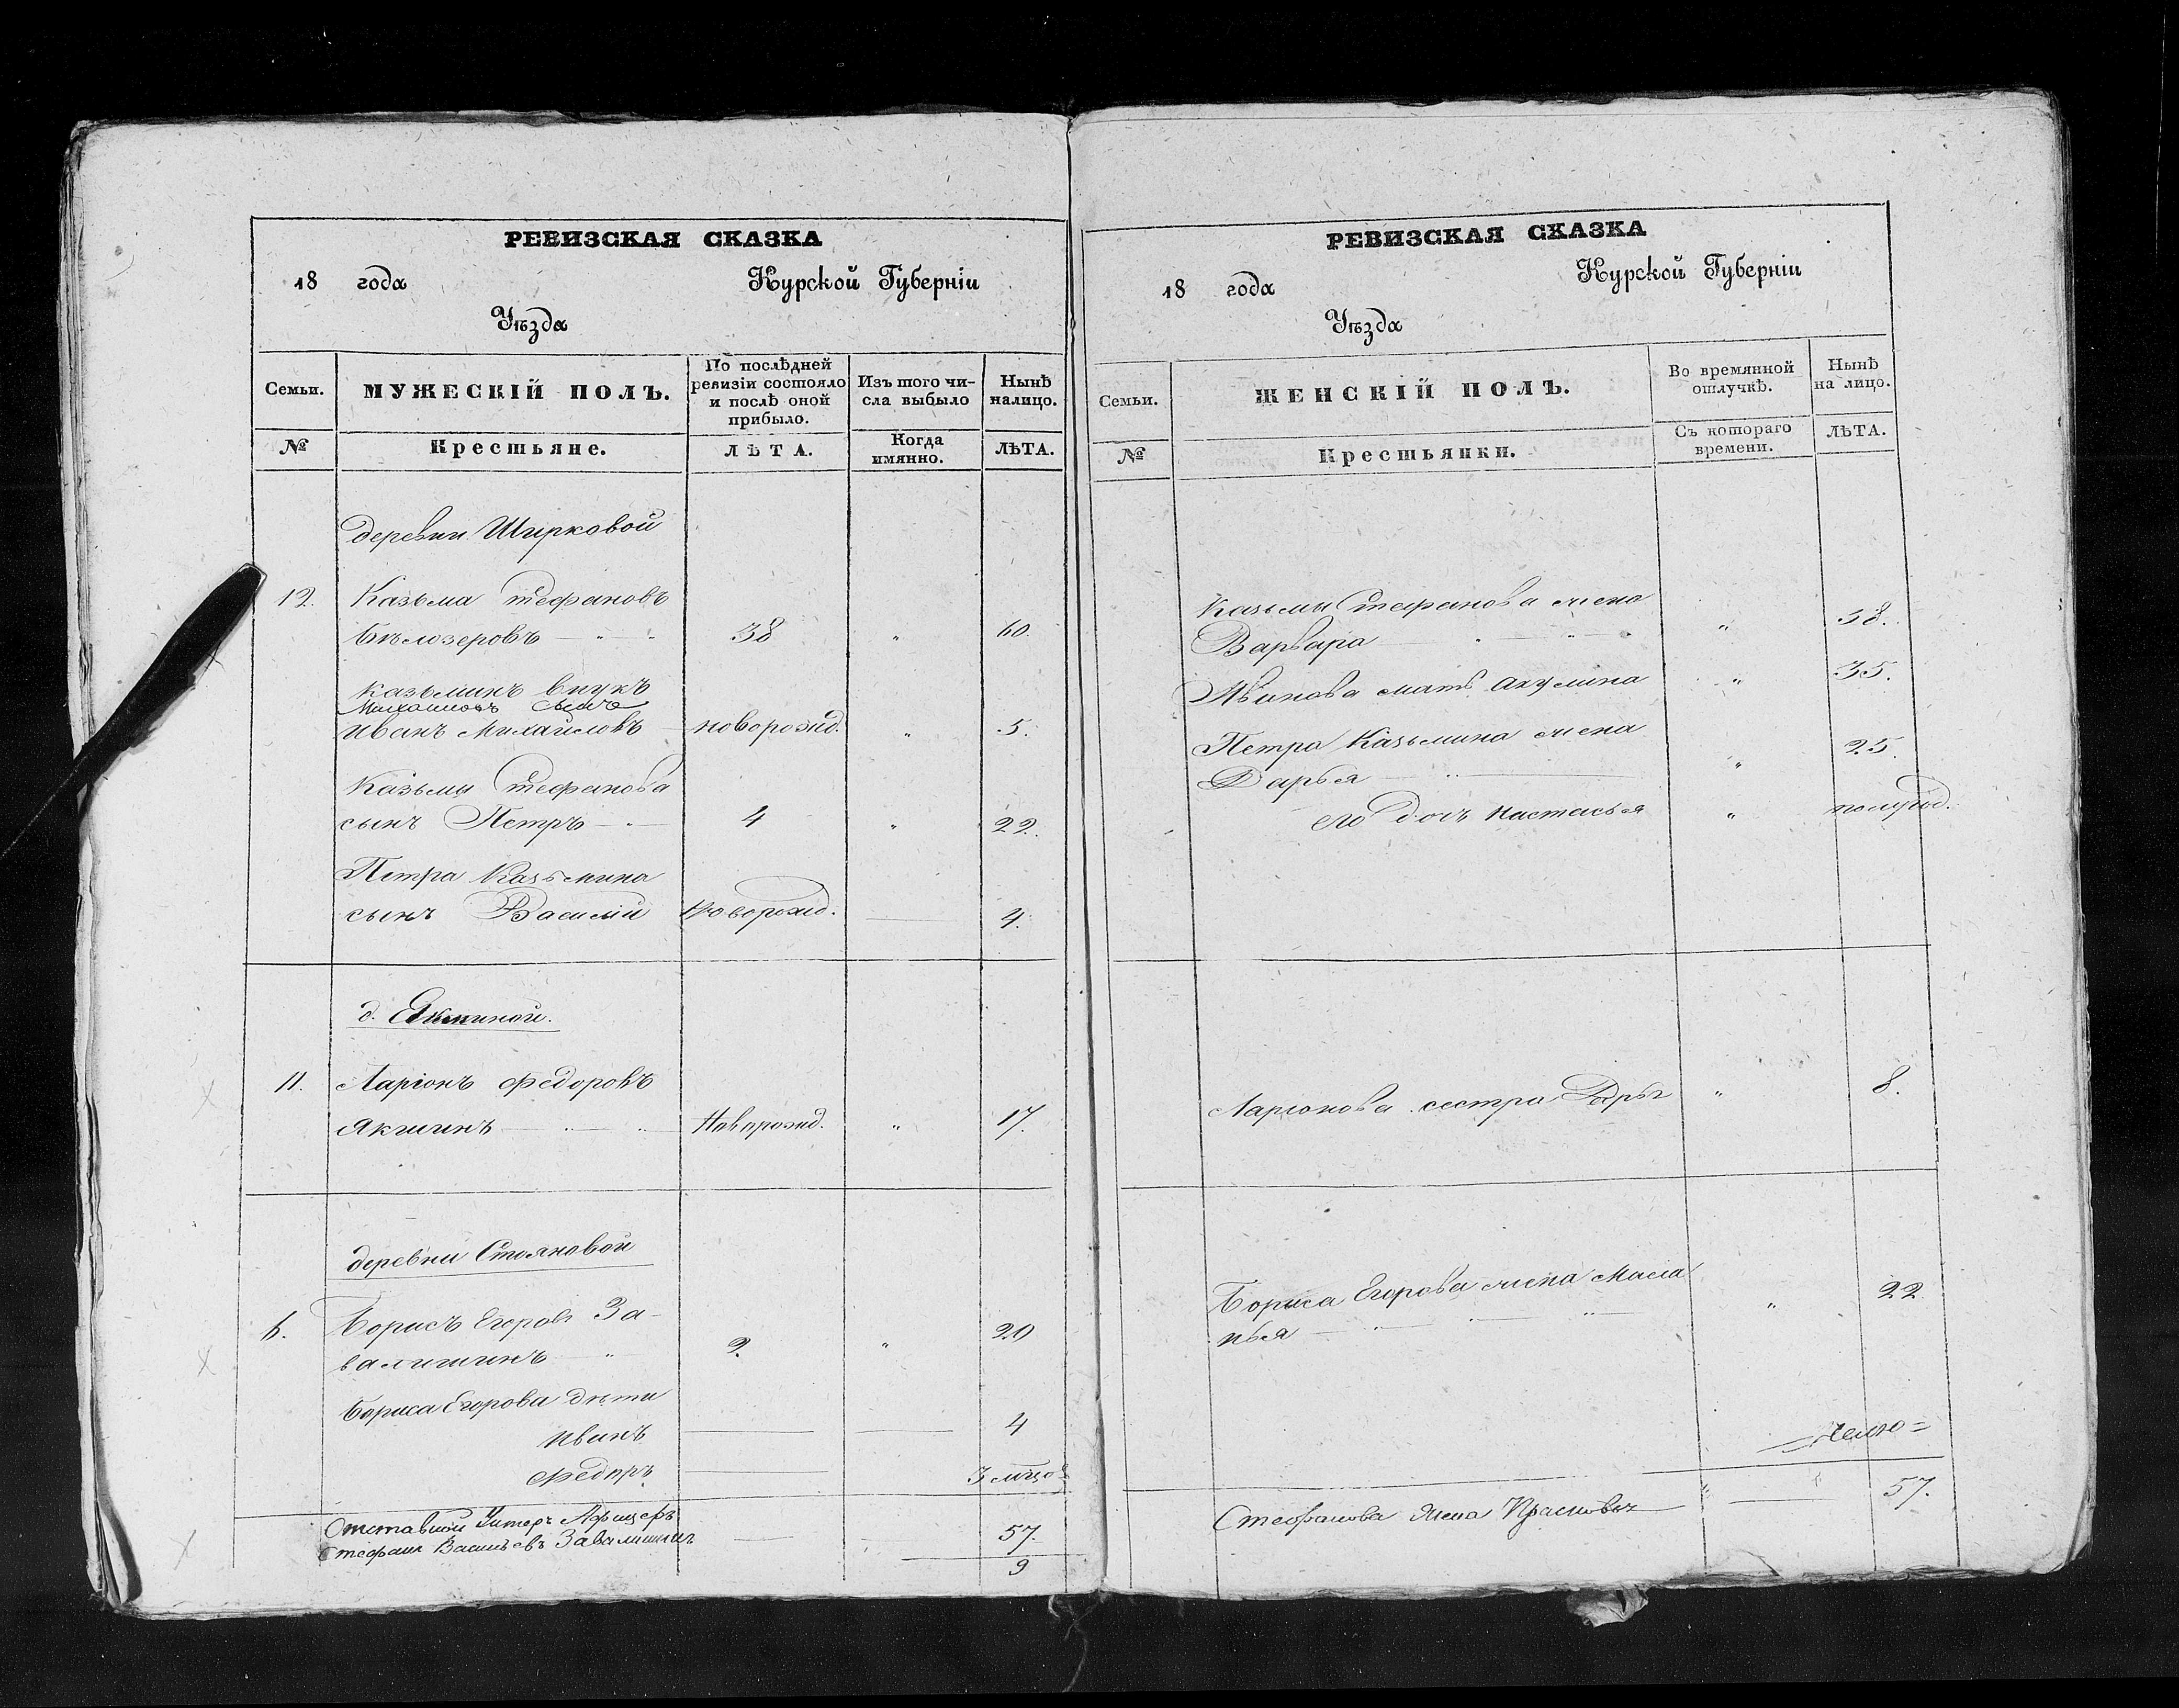 РЕВИЗСКАЯ СКАЗКА
18 года Курской Губерніи
Уѣзда
Семьи. МУЖЕСКІЙ ПОЛЪ. По послѣдней ревизіи состояло и послѣ оной прибыло. Изъ того числа выбыло Нынѣ налицо.
№ Крестьяне. ЛѢТА. Когда имянно. ЛѢТА.
деревни Ширковой
12. Казьма Стефановъ
Бѣлозеровъ 38 " 60
Казьминъ внукъ
Михаиловъ сынъ
Иванъ Михайловъ новорожд. " 5.
Казьмы Стефанова
сынъ Петръ 4 " 22.
Петра Казьмина
сынъ Василій Новорожд. 4.
д. Якшиной.
11. Ларіонъ Федоровъ
Якшинъ Новорожд. " 17.
деревни Стояновой
6. Борисъ Егоровъ За-
валишинъ " 2. " 20
Бориса Егорова дѣти
Иванъ 4
Федоръ 3 мѣцо
Отставной Унтеръ Афицеръ
Стефанъ Васильевъ Завалишинъ 57.
9
РЕВИЗСКАЯ СКАЗКА
18 года Курской Губерніи
Уѣзда
Семьи. ЖЕНСКІЙ ПОЛЪ. Во времянной отлучкѣ. Нынѣ на лицо.
№ Крестьянки. Съ котораго времени. ЛѢТА.
Казьмы Стефанова жена
Варвара " 58.
Иванова мать Акулина " 35.
Петра Казьмина жена
Дарья " 25.
его дочь Настасья " полугод.
Ларіонова сестра Дарья " 8.
Бориса Егорова жена Мела
нья " 22
Стефанова жена Прасковья " 57.